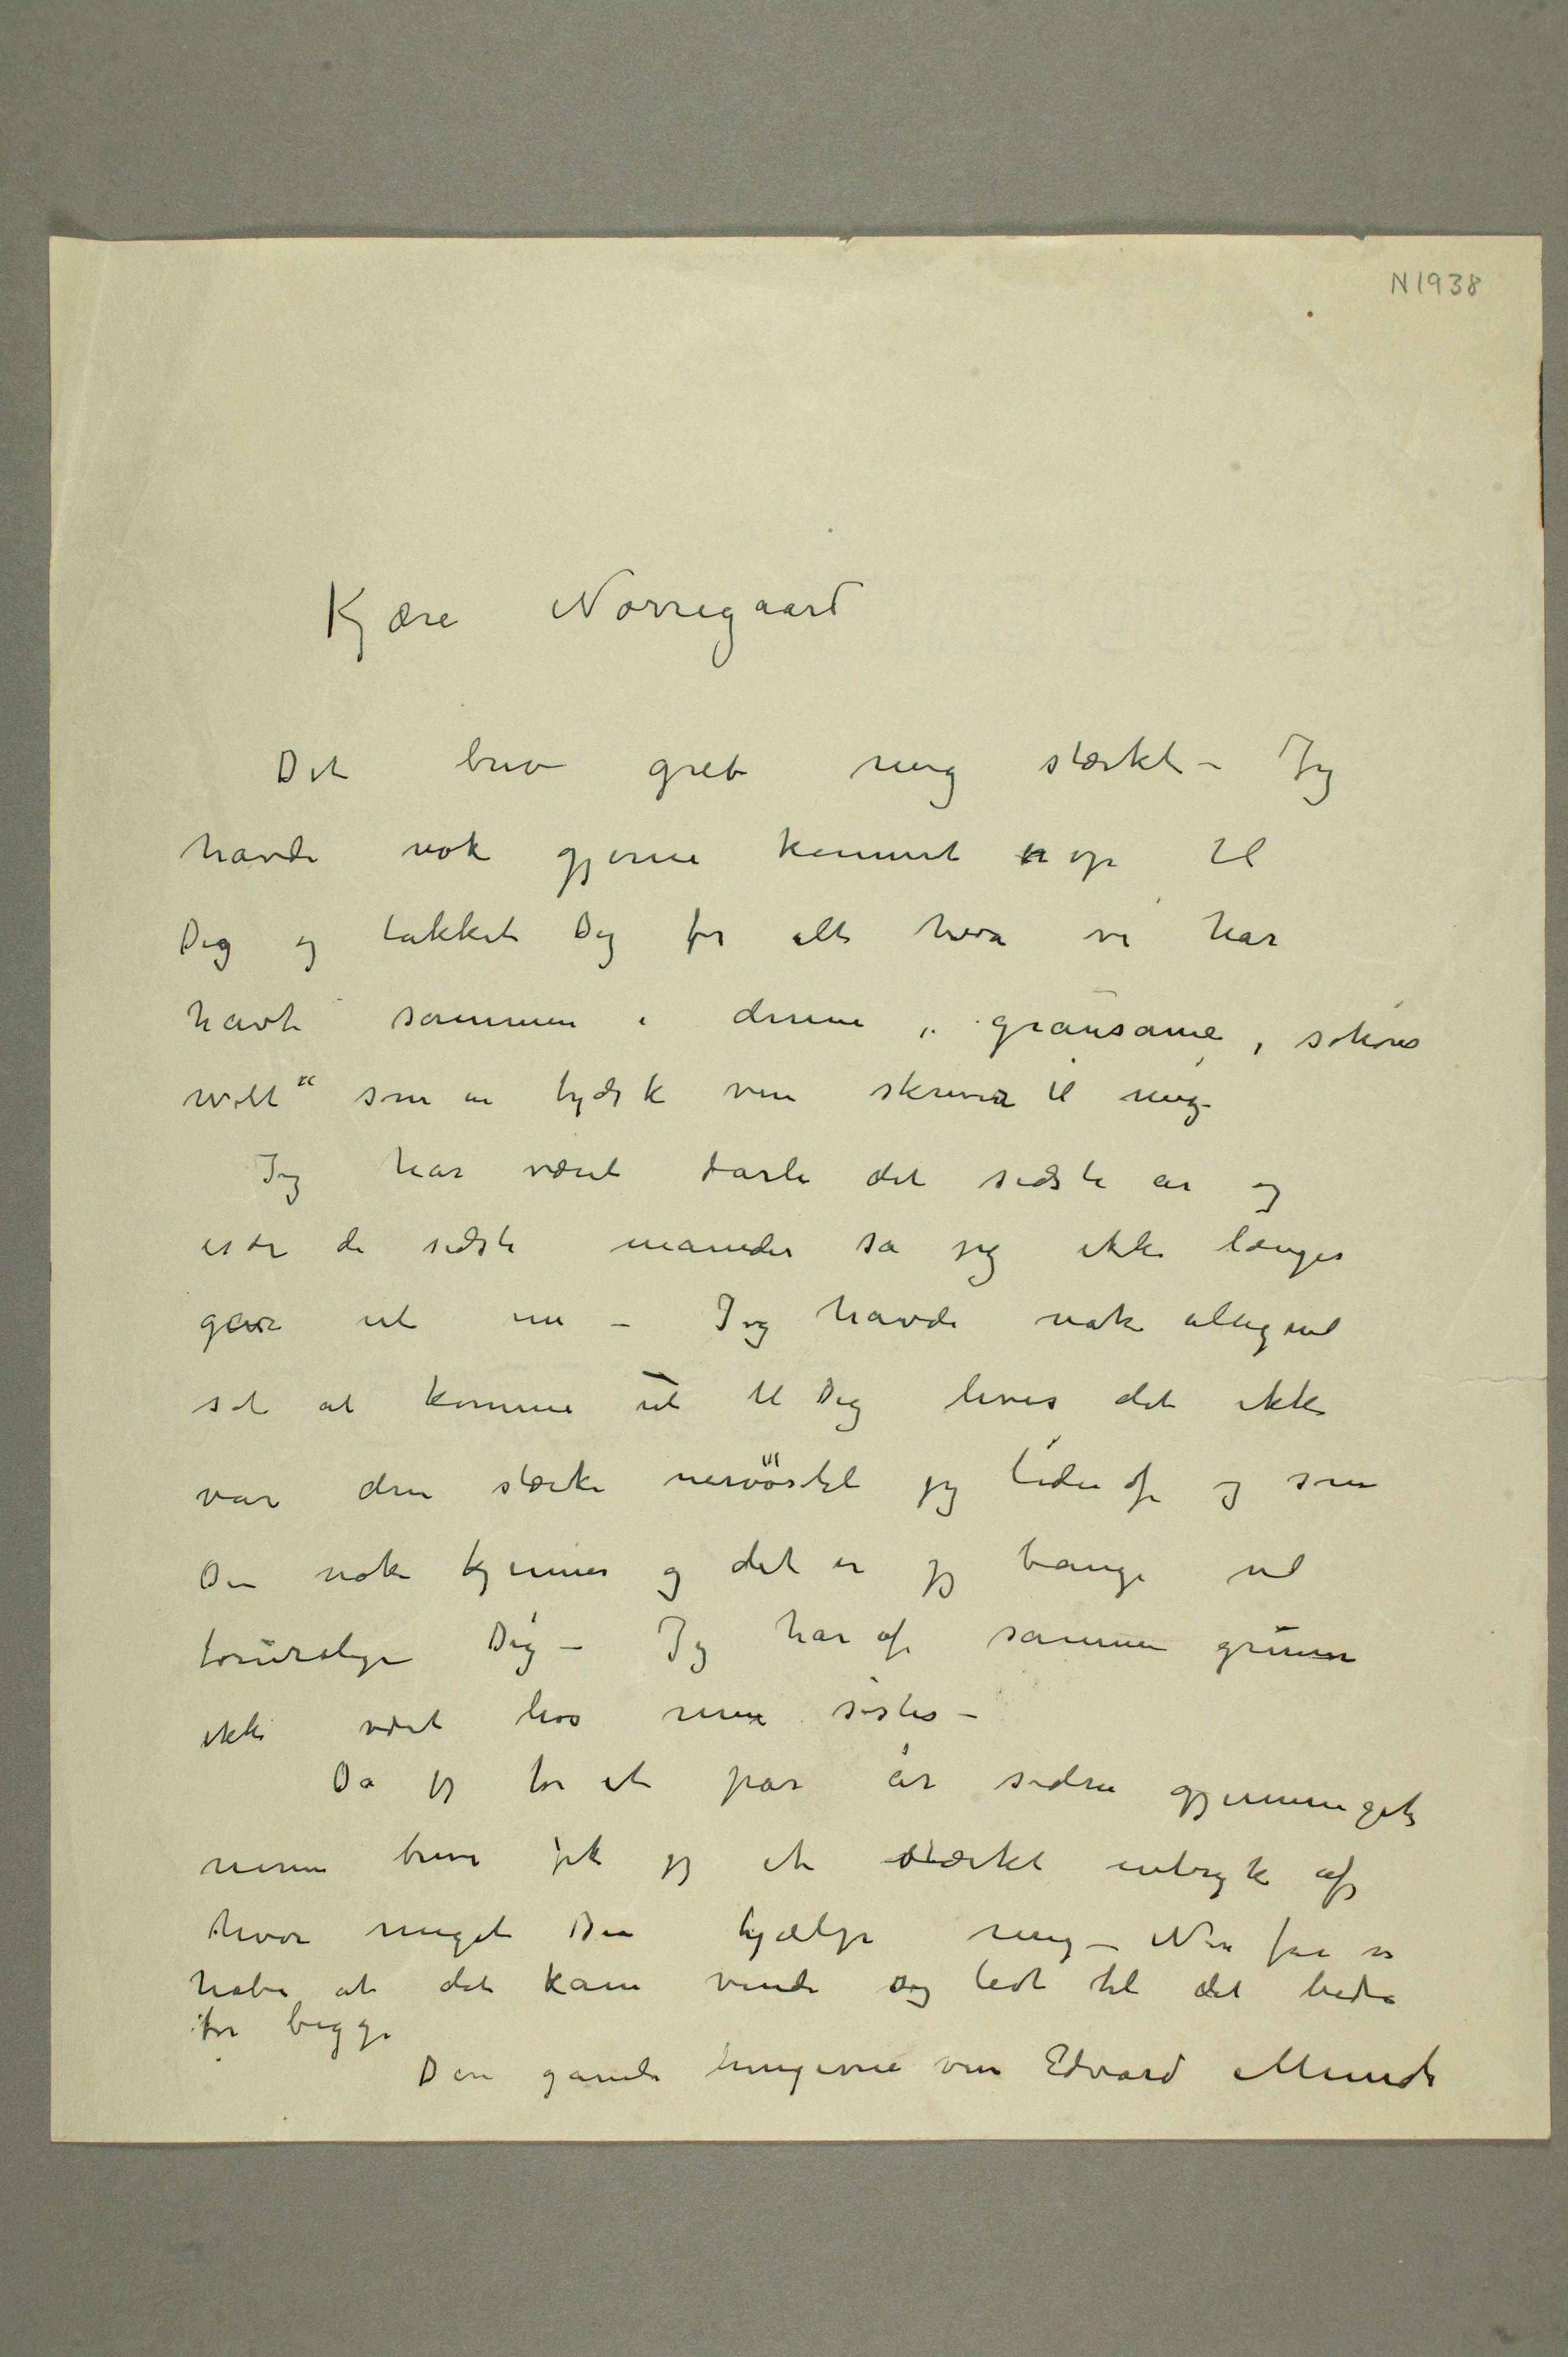 N1938
Kjære Nørregaard
Dit brev greb mig stærkt – Jeg
havde nok gjerne kommet op til
Dig og takket Dig for alt hva vi har
havt sammen i denne „grausame, schöne
welt“ som en tydsk ven skriver til mig –
Jeg har været darlig det sidste år og
især de sidste måneder så jeg ikke længer
går ut nu – Jeg havde nok alligevel
set at komme ut til Dig hvis det ikke
var den stærke nervøsitet jeg lider af og som
Du nok kjenner og det er jeg bange vil
forurolige Dig – Jeg har af samme grunn
ikke været hos min søster –
Da jeg for et par år siden gjennemgik
mine breve fik jeg et stærkt indtryk af
hvor meget Du hjælpe mig – Nu får vi
håbe at det kan vende sig lidt til det bedre
for begge
Din gamle hengivne ven Edvard Munch